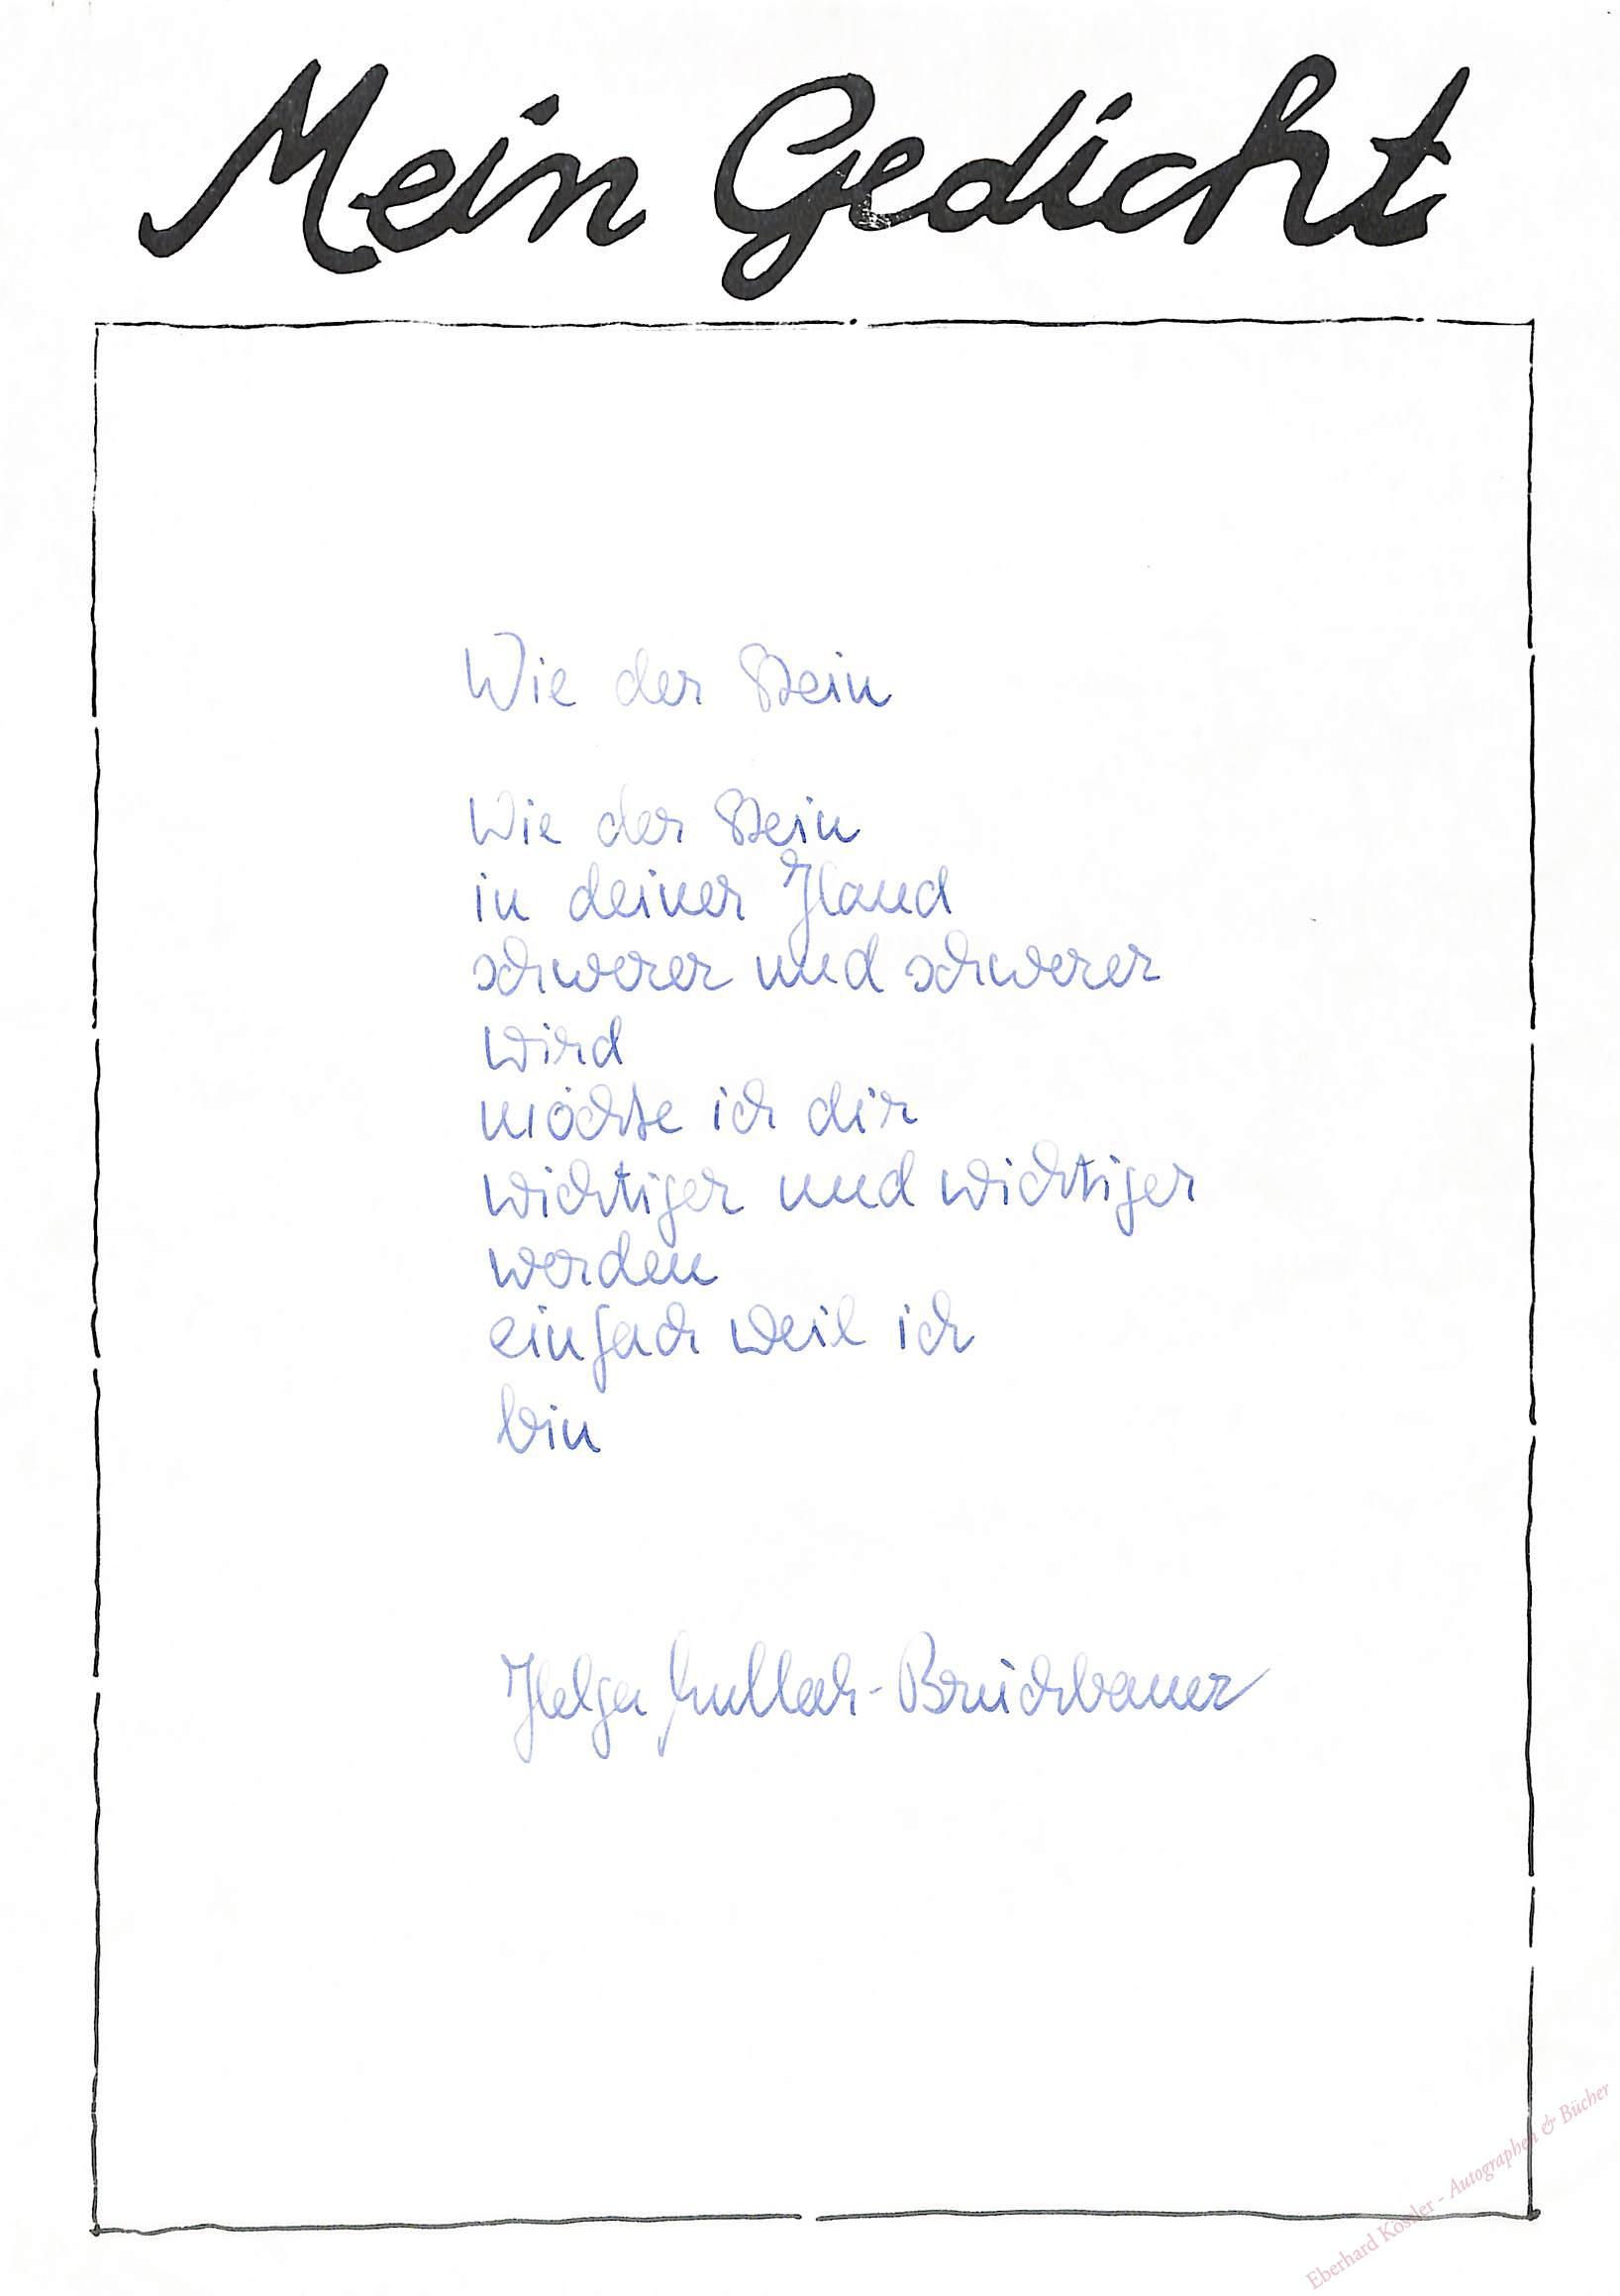 Mein Gedicht
Wie der Stein
Wie der Stein
in deiner Hand
schwerer und schwerer
wird
möchte ich dir
wichtiger und wichtiger
werden
einfach weil ich
bin
Helga
Eberhard Köstler - Autographen & Bücher